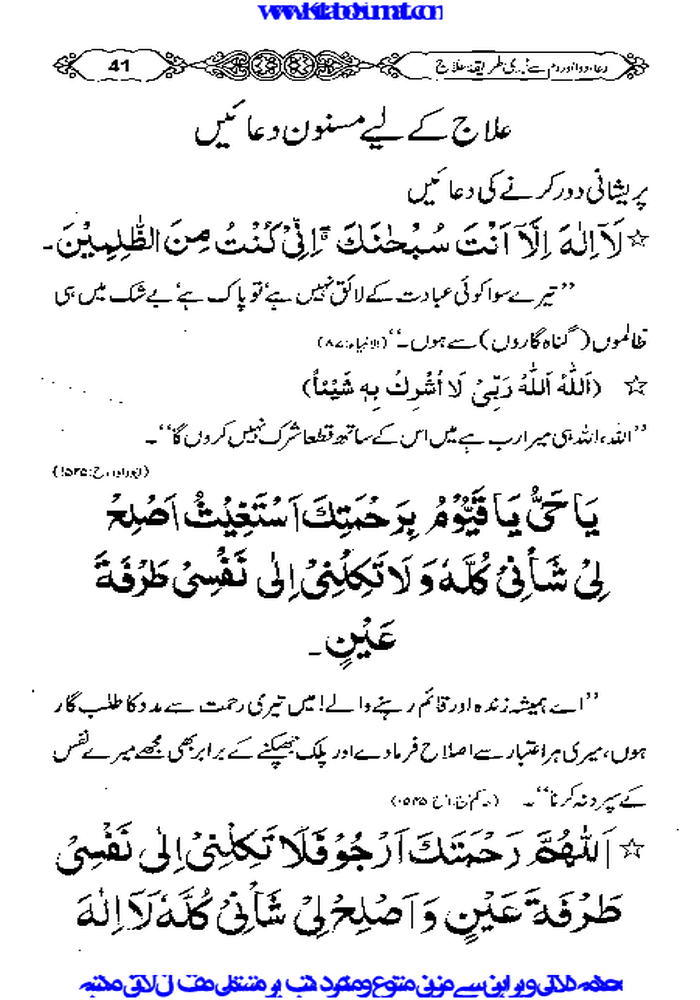 www.KitaboSunnat.com
41
دعا، دوا اور دم سے نبوی طریقہ علاج
علاج کے لیے مسنون دعائیں
پریشانی دور کرنے کی دعائیں
☆ لَآ اِلٰهَ اِلَّآ اَنْتَ سُبْحٰنَكَ ۖ اِنِّىْ كُنْتُ مِنَ الظّٰلِمِيْنَ۔
”تیرے سوا کوئی عبادت کے لائق نہیں ہے‘ تو پاک ہے‘ بے شک میں ہی
ظالموں (گناہ گاروں) سے ہوں۔“ (الانبیاء:۸۷)
☆ (اَللّٰهُ اَللّٰهُ رَبِّىْ لَا اُشْرِكُ بِهٖ شَيْئاً)
”اللہ، اللہ ہی میرا رب ہے میں اس کے ساتھ قطعا شرک نہیں کروں گا“۔
(ابوداود، ح:۱۵۲۵)
يَا حَىُّ يَا قَيُّوْمُ بِرَحْمَتِكَ اَسْتَغِيْثُ اَصْلِحْ
لِىْ شَأْنِىْ كُلَّهٗ وَلَا تَكِلْنِىْ اِلٰى نَفْسِىْ طَرْفَةَ
عَيْنٍ۔
”اے ہمیشہ زندہ اور قائم رہنے والے! میں تیری رحمت سے مدد کا طلب گار
ہوں، میری ہر اعتبار سے اصلاح فرما دے اور پلک جھپکنے کے برابر بھی مجھے میرے نفس
کے سپرد نہ کرنا“۔
☆ اَللّٰهُمَّ رَحْمَتَكَ اَرْجُوْ فَلَا تَكِلْنِىْ اِلٰى نَفْسِىْ
طَرْفَةَ عَيْنٍ وَاَصْلِحْ لِىْ شَأْنِىْ كُلَّهٗ لَآ اِلٰهَ